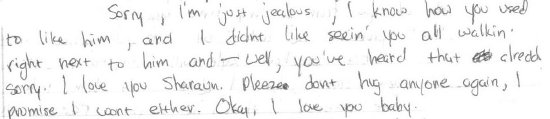 Sorry, I'm just jealous, I know how you used
to like him, and I didnt like seein' you all walkin'
right next to him and — well, you've heard that alread
sorry. I love you Sharaun. Pleeze dont hug anyone again, I
promise I wont either. Okay, I love you baby.